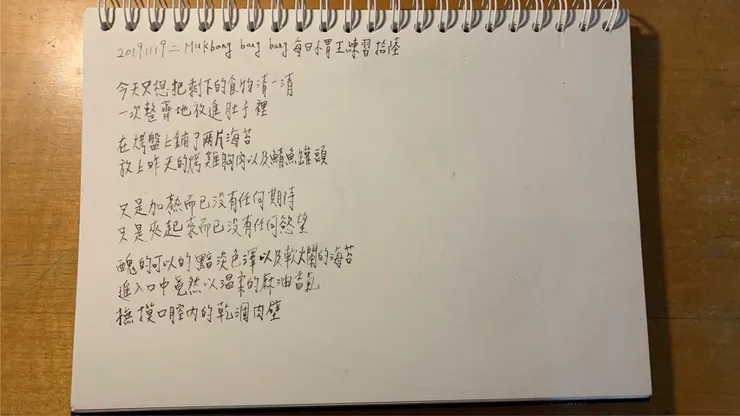 20191119二 Mukbang bang bang 每日小胃王練習拾陸
今天只想把剩下的食物清一清
一次整齊地放進肚子裡
在烤盤上鋪了兩片海苔
放上昨天的烤雞胸肉以及鯖魚罐頭
只是加熱而已沒有任何期待
只是夾起來而已沒有任何慾望
醜的可以的黯淡色澤以及軟爛的海苔
進入口中竟然以溫柔的麻油香氣
撫摸口腔內的乾涸肉壁